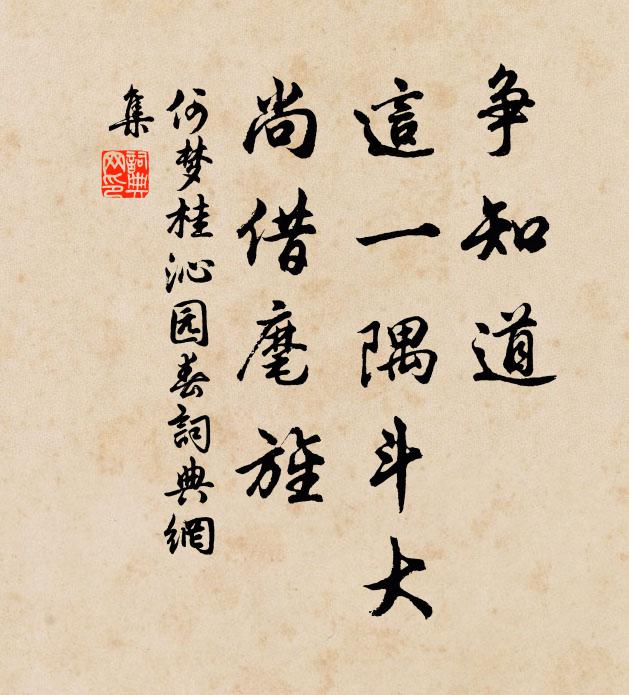 争知道
這一隅斗大
尚借麾旌
何梦桂沁园春詞典網
集
詞典
网印